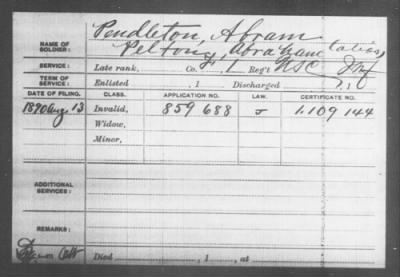 NAME OF SOLDIER: Pendleton, Abram
Pelton, Abraham (alias)
SERVICE: Late rank, Co. F, 1 Reg't N.S.C. Inf
TERM OF SERVICE: Enlisted , 1 Discharged , 1
DATE OF FILING. CLASS. APPLICATION NO. LAW. CERTIFICATE NO.
1890 Aug 13 Invalid, 859 688 J 1,109,144
Widow,
Minor,
ADDITIONAL SERVICES:
REMARKS:
Died , 1 , at